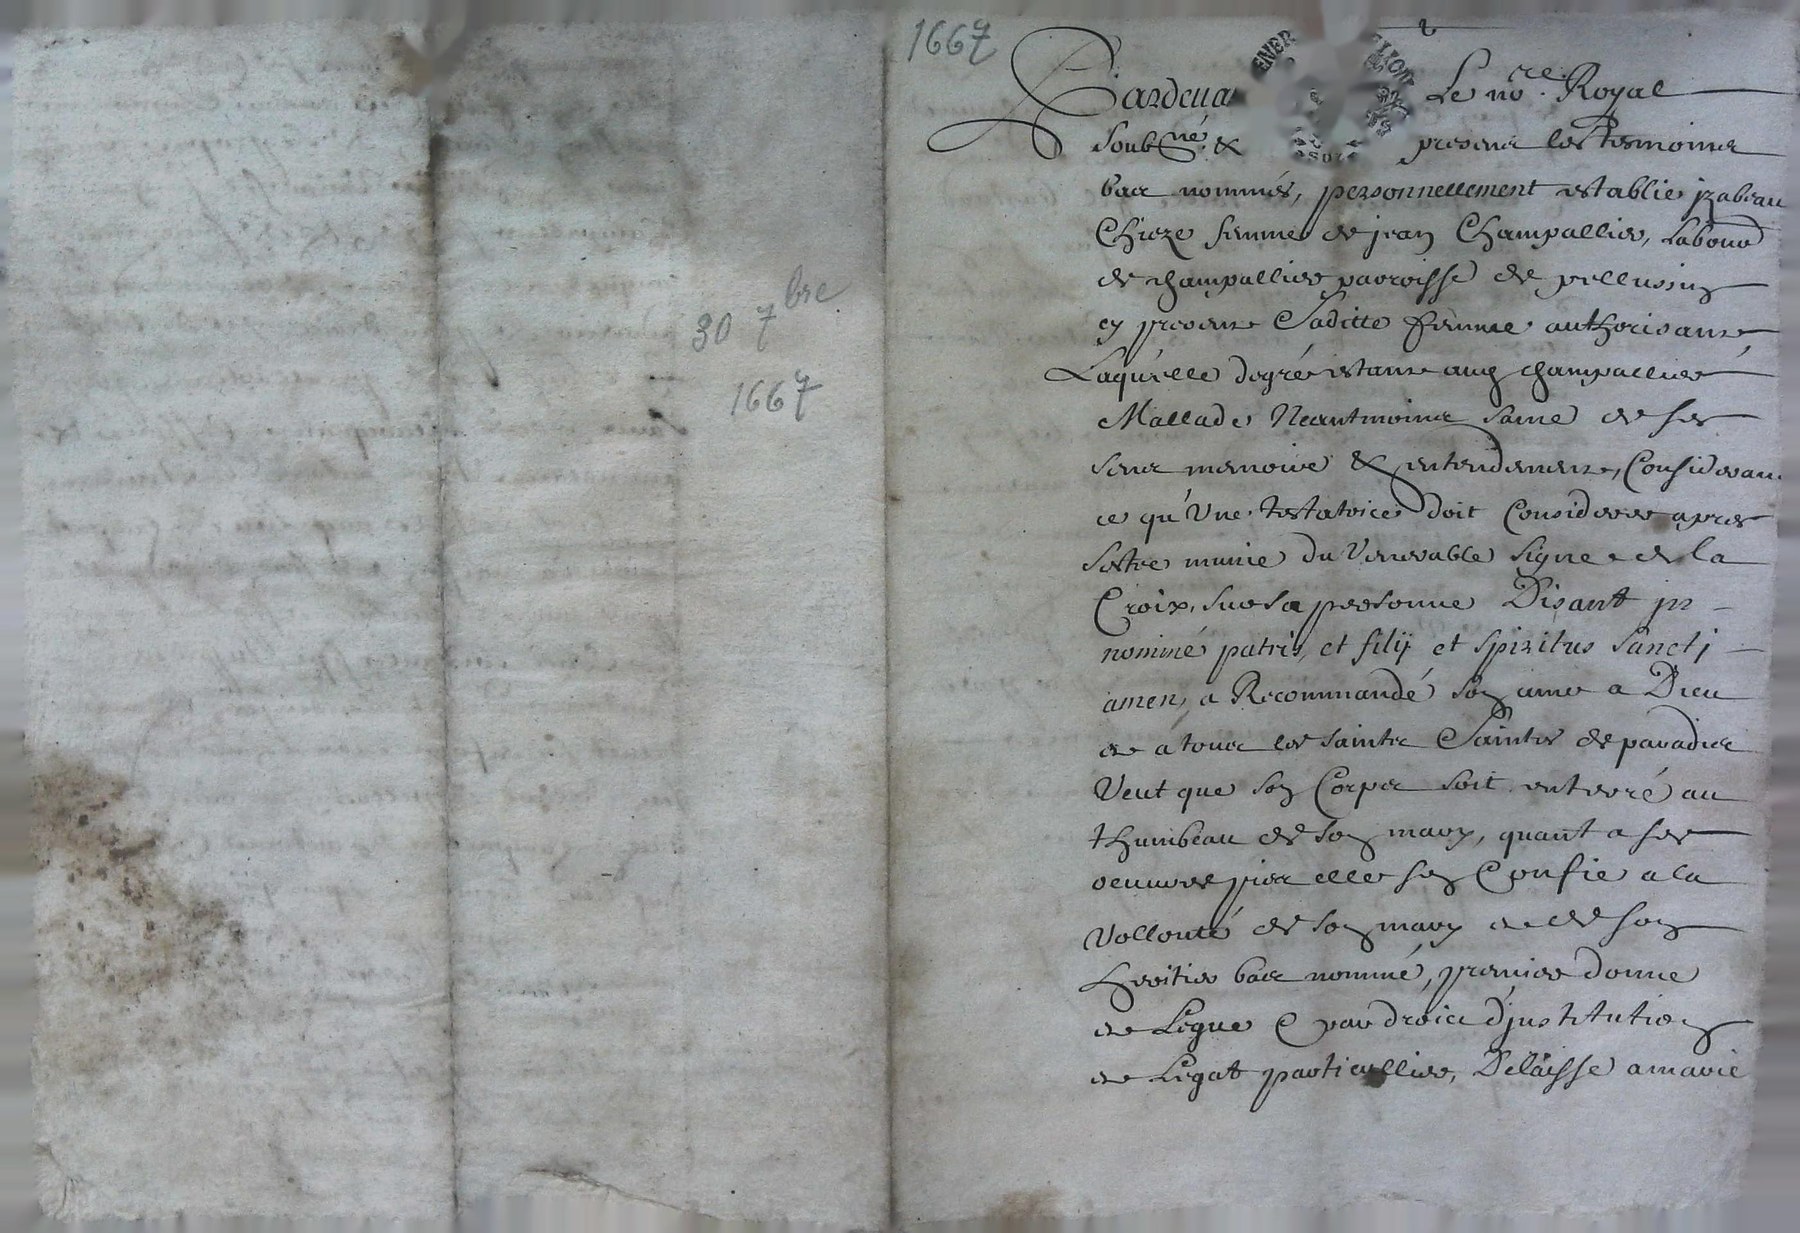 30 7bre
1667
1667
Pardeua Le nore. Royal
Soubné. & presens les tesmoins
bas nommés, personnellement establie jzabeau
Chieze femme de jean Champallier, Labour
de champallier parroisse de pellussin
cy presente Saditte femme authorisant
Laquelle degré estant aud champallier
Mallade Neantmoins saine de ses
sens memoire & entendement, Considerant
ce qu'Une testatrice doit Considerer apres
sestre munie du Venerable signe de la
Croix, sur sa personne Disant jn
nominé patris, et filij et spiritus sanctj
amen, a Recommandé son ame a Dieu
et a tous les saints Saintes de paradis
Veut que son Corps soit enterré au
thumbeau de son mary, quant a ses
oeuures pies elle sen Confie a la
Vollonté de son mary et de son
heritier bas nommé, premier donne
et Legue & par droict d'jnstitution
et Legat particullier, Delaisse a marie